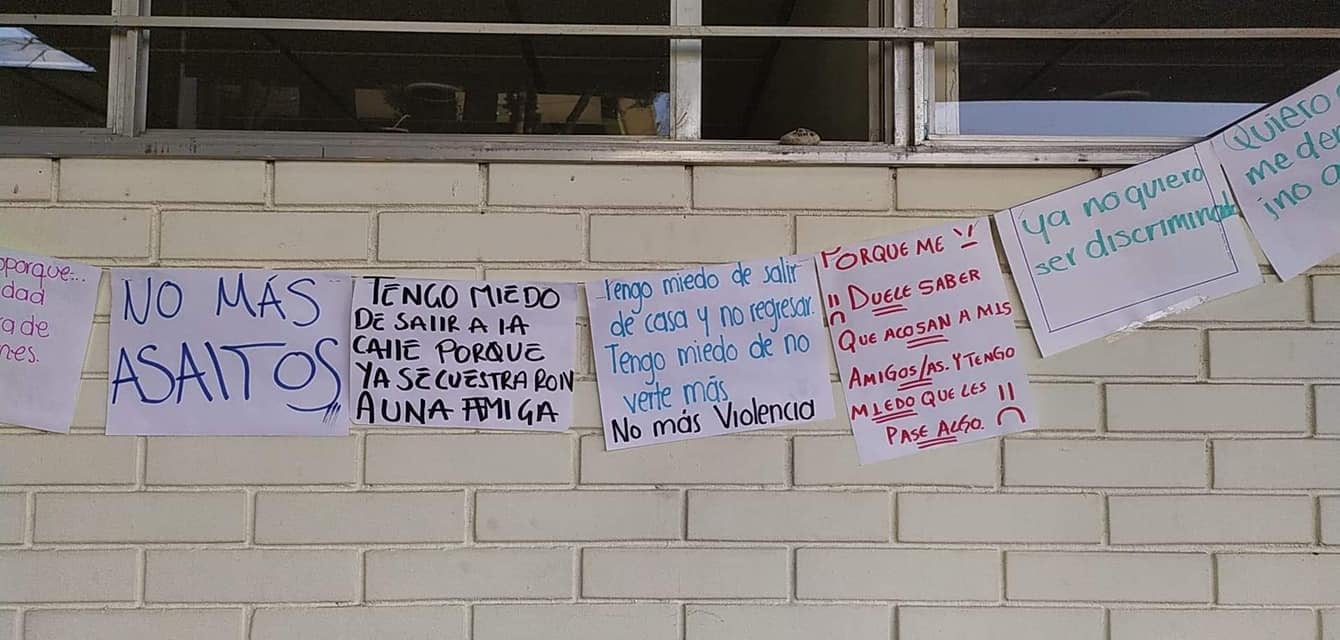 porque...
dad
a de
nes.
NO MÁS
ASALTOS
TENGO MIEDO
DE SALIR A LA
CALLE PORQUE
YA SECUESTRARON
A UNA AMIGA
Tengo miedo de salir
de casa y no regresar.
Tengo miedo de no
verte más
No más Violencia
PORQUE ME
DUELE SABER
QUE ACOSAN A MIS
AMIGOS/AS. Y TENGO
MIEDO QUE LES
PASE ALGO.
Ya no quiero
ser discriminado
Quiero
me de
¡no a